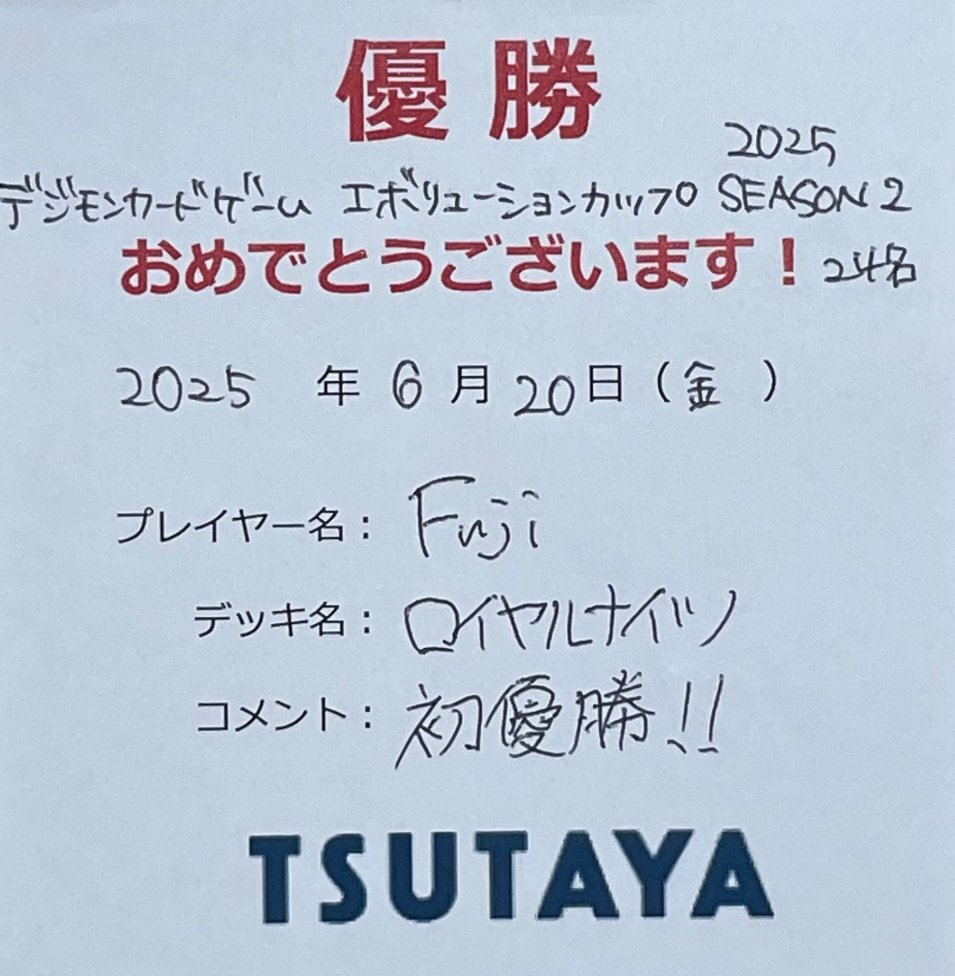 優勝
2025
デジモンカードゲーム エボリューションカップ SEASON 2
おめでとうございます！ 24名
2025 年 6 月 20日（金）
プレイヤー名： Fuji
デッキ名： ロイヤルナイツ
コメント： 初優勝!!
TSUTAYA